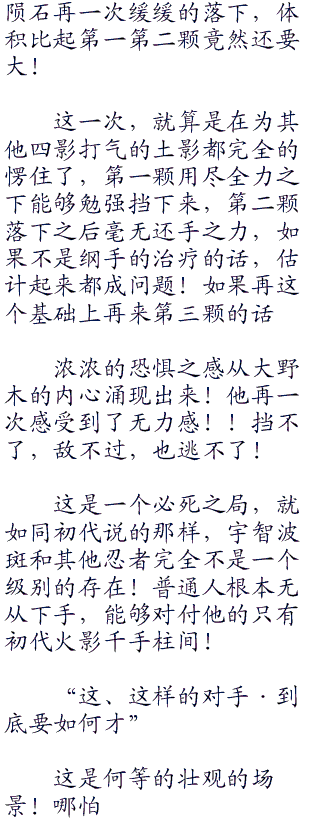 陨石再一次缓缓的落下，体
积比起第一第二颗竟然还要
大！
这一次，就算是在为其
他四影打气的土影都完全的
愣住了，第一颗用尽全力之
下能够勉强挡下来，第二颗
落下之后毫无还手之力，如
果不是纲手的治疗的话，估
计起来都成问题！如果再这
个基础上再来第三颗的话
浓浓的恐惧之感从大野
木的内心涌现出来！他再一
次感受到了无力感！！挡不
了，敌不过，也逃不了！
这是一个必死之局，就
如同初代说的那样，宇智波
斑和其他忍者完全不是一个
级别的存在！普通人根本无
从下手，能够对付他的只有
初代火影千手柱间！
“这、这样的对手·到
底要如何才”
这是何等的壮观的场
景！哪怕